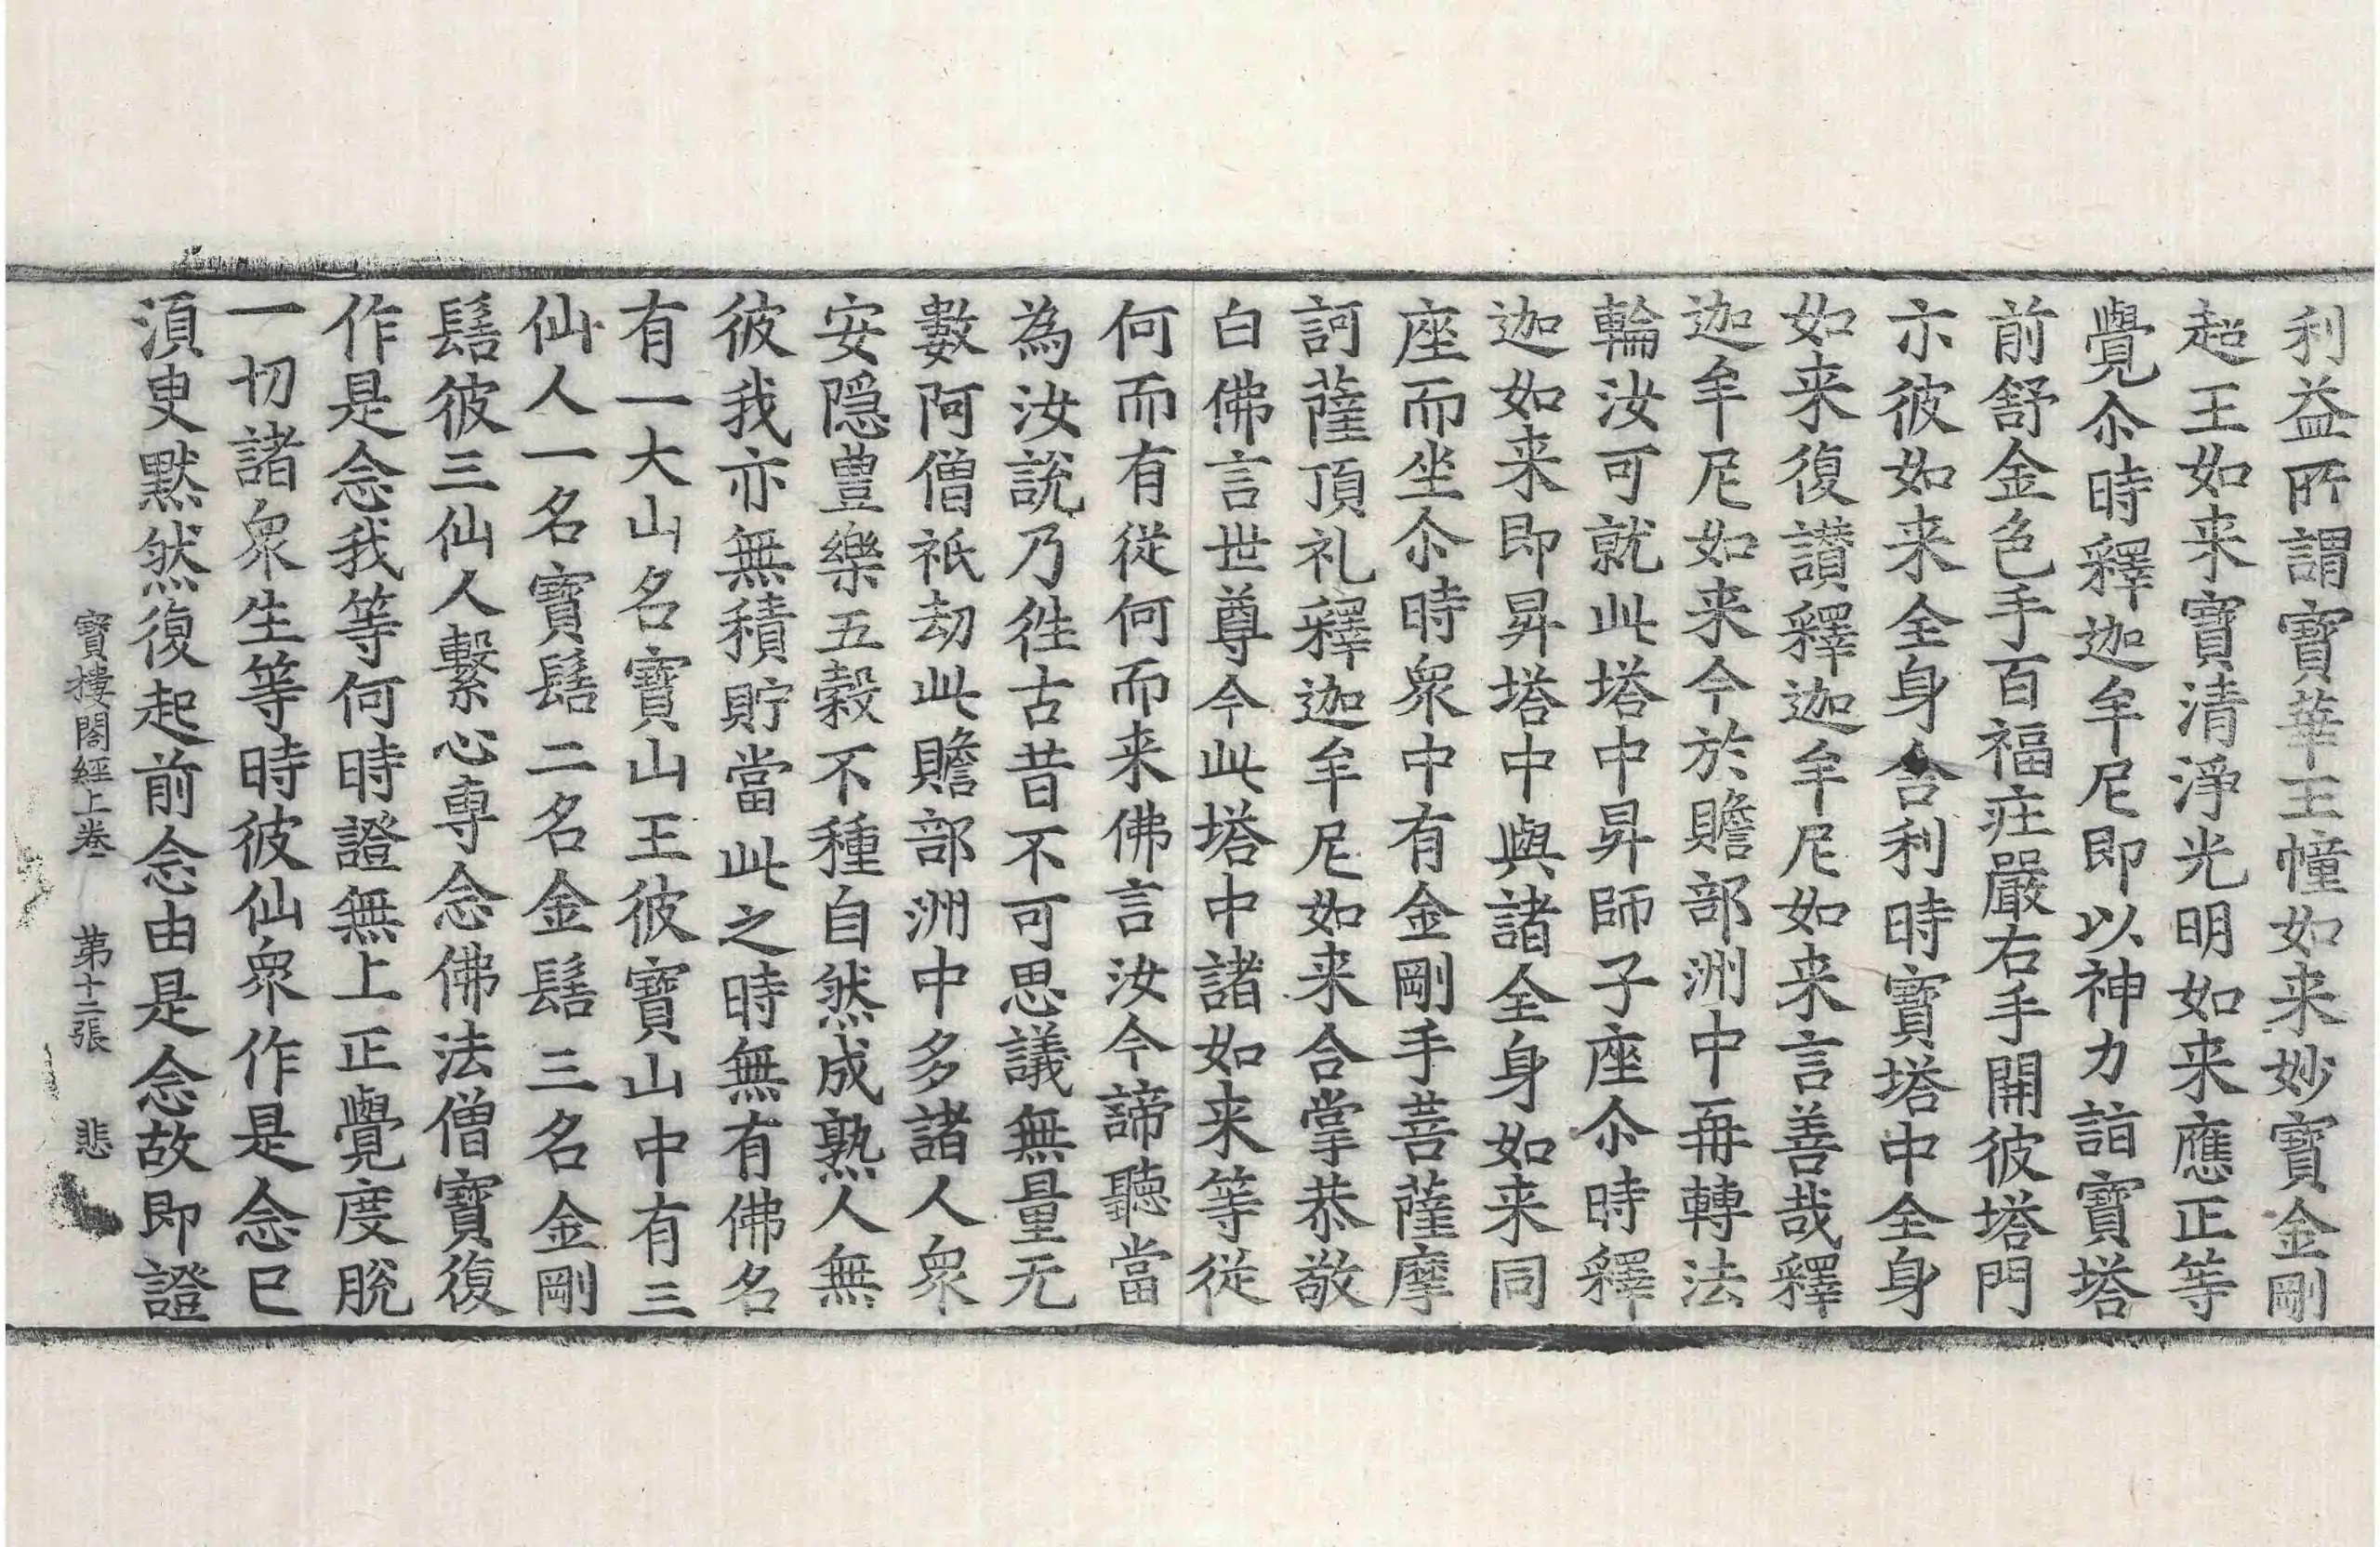 利益所謂寶華王幢如来妙寶金剛
超王如来寶清淨光明如来應正等
覺尒時釋迦牟尼即以神力詣寶塔
前舒金色手百福㽵嚴右手開彼塔門
示彼如来全身舍利時寶塔中全身
如来復讃釋迦牟尼如来言善哉釋
迦牟尼如来今於贍部洲中再轉法
輪汝可就此塔中昇師子座尒時釋
迦如来即昇塔中與諸全身如来同
座而坐尒時衆中有金剛手菩薩摩
訶薩頂礼釋迦牟尼如来合掌恭敬
白佛言世尊今此塔中諸如来等從
何而有從何而来佛言汝今諦聽當
為汝說乃徃古昔不可思議無量无
數阿僧祇劫此贍部洲中多諸人衆
安隱豊樂五榖不種自然成熟人無
彼我亦無積貯當此之時無有佛名
有一大山名寶山王彼寶山中有三
仙人一名寶髻二名金髻三名金剛
髻彼三仙人繫心專念佛法僧寶復
作是念我等何時證無上正覺度脫
一切諸衆生等時彼仙衆作是念已
湏臾黙然復起前念由是念故即證
寶樓閣經上卷　第十二張　悲